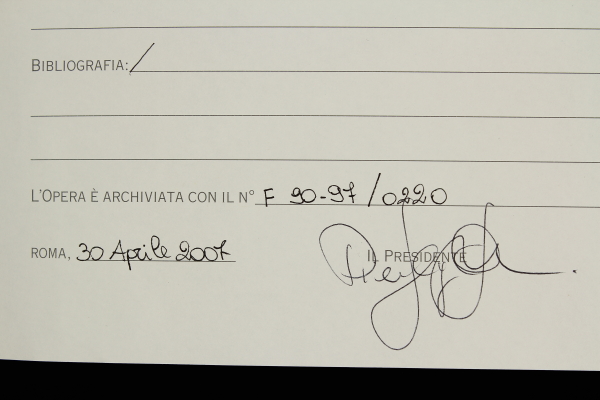 BIBLIOGRAFIA: /
L'OPERA È ARCHIVIATA CON IL N° F 90-97 / 0220
ROMA, 30 Aprile 2007
IL PRESIDENTE